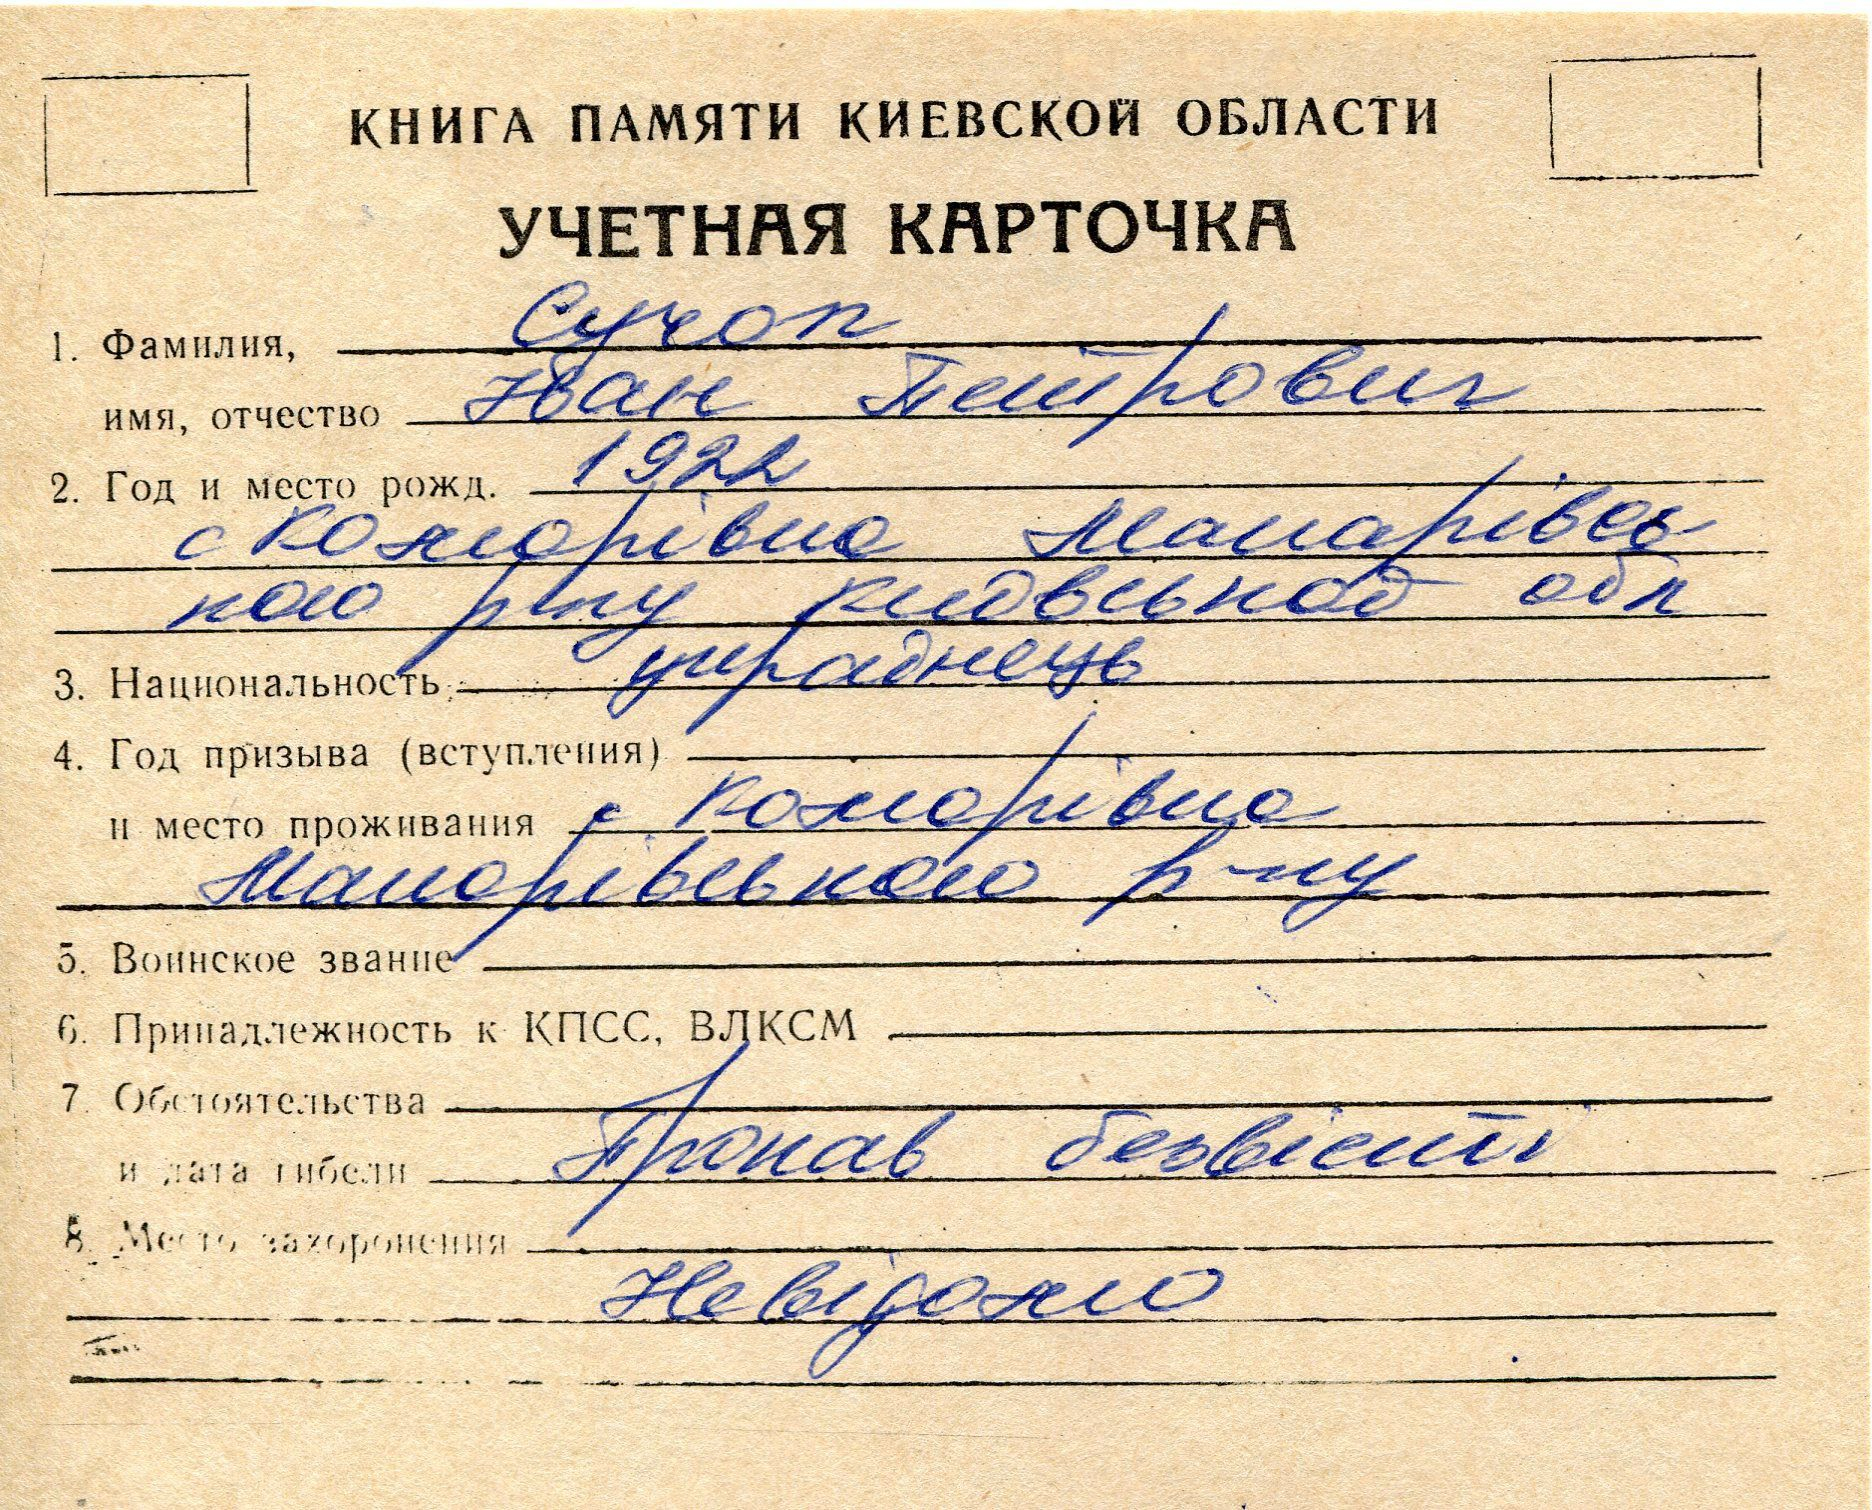 КНИГА ПАМЯТИ КИЕВСКОЙ ОБЛАСТИ
УЧЕТНАЯ КАРТОЧКА
1. Фамилия, Сучоп
имя, отчество Іван Петрович
2. Год и место рожд. 1922
с Комарівка Макарівсь
кого р-ну Київської обл
3. Национальность українець
4. Год призыва (вступления)
и место проживания с Комарівка
Макарівського р-ну
5. Воинское звание
6. Принадлежность к КПСС, ВЛКСМ
7. Обстоятельства
и дата гибели Пропав безвісти
8. Место захоронения
Невідомо